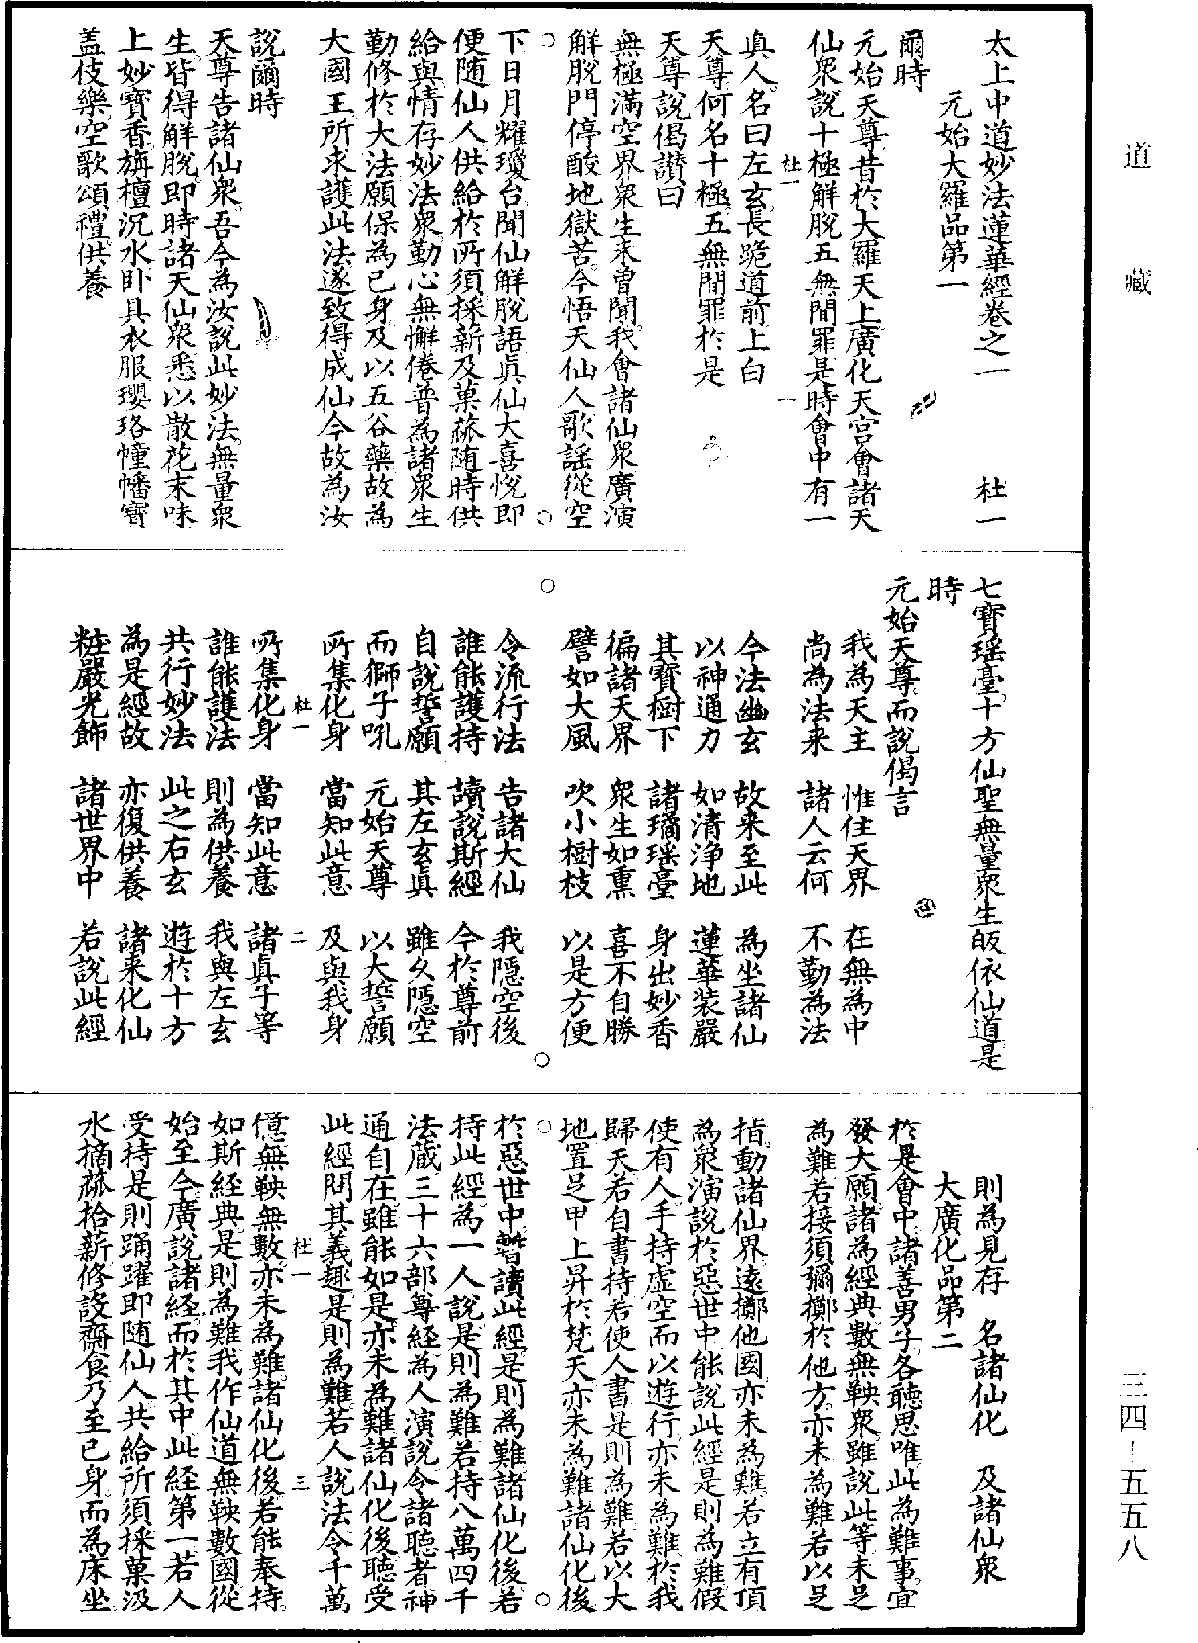 道藏
三四－五五八
太上中道妙法蓮華經卷之一　杜一
元始大羅品第一
爾時
元始天尊昔於大羅天上廣化天宮會諸天
仙衆說十極解脫五無間罪是時會中有一
杜一　一
真人名曰左玄長跪道前上白
天尊何名十極五無間罪於是
天尊說偈讚曰
無極滿空界衆生未曾聞我會諸仙衆廣演
解脫門停酸地獄苦今悟天仙人歌謡從空
下日月耀瓊台聞仙解脫語真仙大喜悅即
便随仙人供給於所須採新及菓蓏随時供
給與情存妙法衆勤心無懈倦普為諸衆生
勤修於大法願保為已身及以五谷藥故為
大國王所求護此法遂致得成仙今故為汝
說爾時
天尊告諸仙衆吾今為汝說此妙法無量衆
生皆得解脫即時諸天仙衆悉以散花末味
上妙寶香旃檀沉水卧具衣服瓔珞幢幡寶
盖伎樂空歌頌禮供養
七寶瑶臺十方仙聖無量衆生皈依仙道是
時
元始天尊而說偈言
我為天主　惟住天界　在無為中
尚為法来　諸人云何　不勤為法
今法幽玄　故来至此　為坐諸仙
以神通力　如清浄地　蓮華装嚴
其寶樹下　諸璚瑶臺　身出妙香
徧諸天界　衆生如熏　喜不自勝
譬如大風　吹小樹枝　以是方便
令流行法　告諸大仙　我隠空後
誰能護持　讀說斯經　今於尊前
自說誓願　其左玄真　雖久隠空
而獅子吼　元始天尊　以大誓願
所集化身　當知此意　及與我身
杜一　二
所集化身　當知此意　諸真子等
誰能護法　則為供養　我與左玄
共行妙法　此之右玄　遊於十方
為是經故　亦復供養　諸来化仙
粧嚴光飾　諸世界中　若說此經
則為見存　名諸仙化　及諸仙衆
大廣化品第二
於是會中諸善男子各聽思唯此為難事宜
發大願諸為經典數無鞅衆雖說此等未足
為難若接須彌擲於他方亦未為難若以足
指動諸仙界遠擲他國亦未為難若立有頂
為衆演說於惡世中能說此經是則為難假
使有人手持虛空而以遊行亦未為難於我
歸天若自書持若使人書是則為難若以大
地置足甲上昇於梵天亦未為難諸仙化後
於惡世中暫讀此經是則為難諸仙化後若
持此經為一人說是則為難若持八萬四千
法藏三十六部尊經為人演說令諸聽者神
通自在雖能如是亦未為難諸仙化後聽受
此經問其義趣是則為難若人說法令千萬
杜一　三
億無鞅無數亦未為難諸仙化後若能奉持
如斯經典是則為難我作仙道無鞅數國從
始至今廣說諸經而於其中此經第一若人
受持是則踊躍即随仙人共給所須採菓汲
水摘蓏拾薪修設齋食乃至已身而為床坐